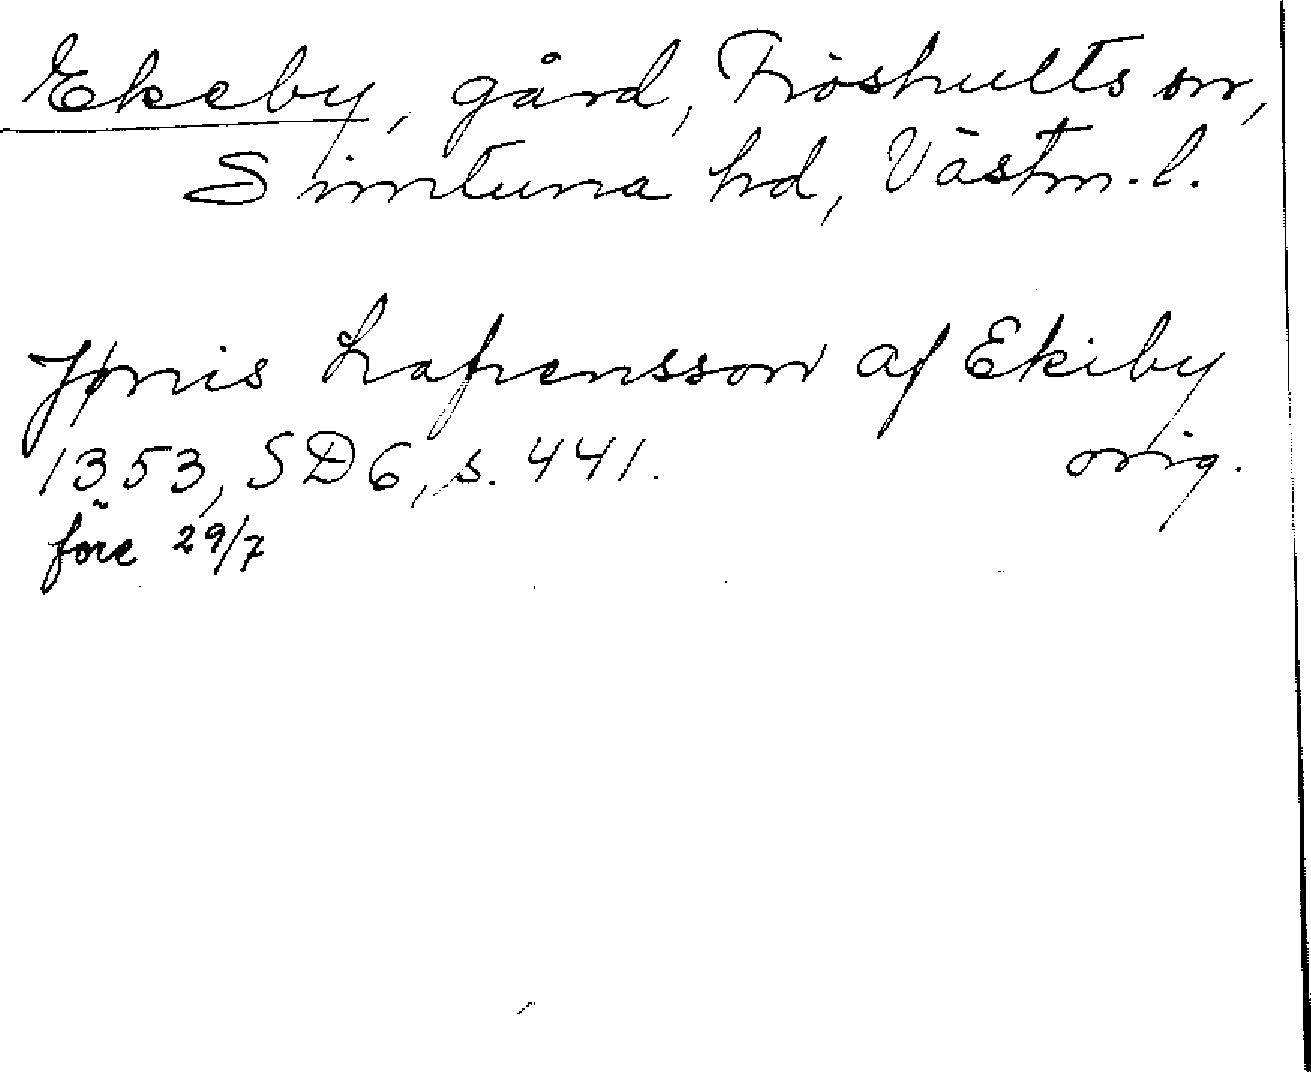 Ekeby, gård, Fröshults sn,
Simtuna hd, Västm. l.
Jønis Lafrensson af Ekiby
1353, SD6, s. 441. orig.
före 29/7